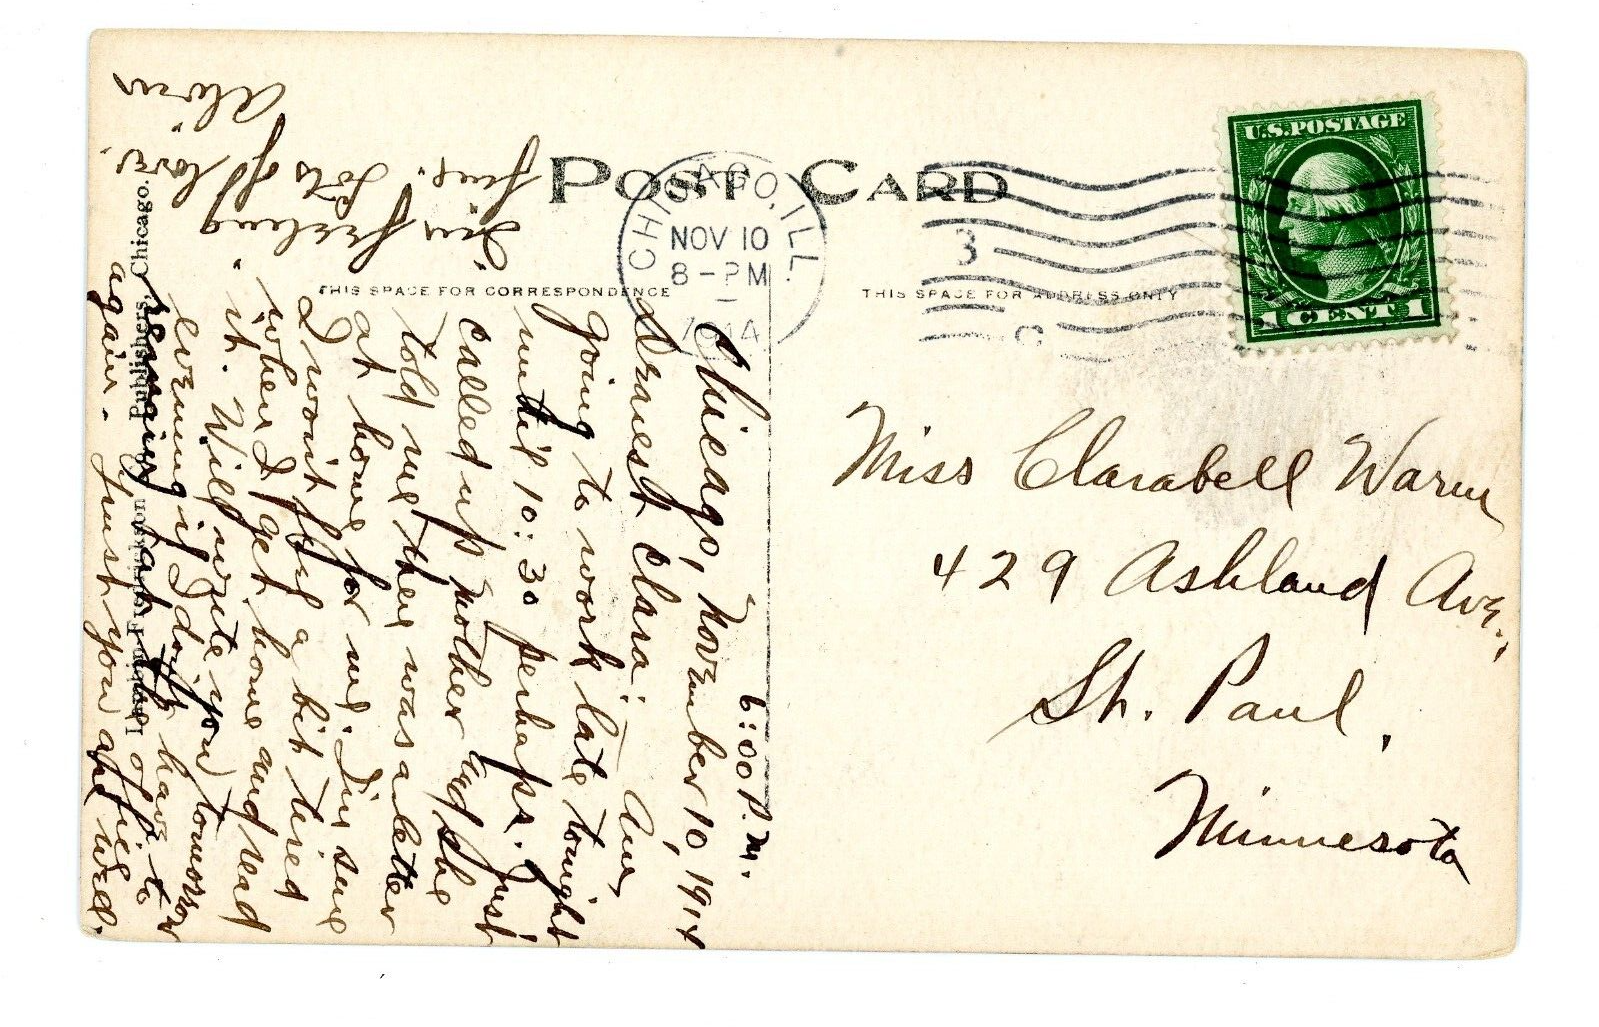 POST CARD
THIS SPACE FOR CORRESPONDENCE
THIS SPACE FOR ADDRESS ONLY
CHICAGO, ILL.
NOV 10
8-PM
1914
3
C
U.S.POSTAGE
1 CENT 1
Miss Clarabell Warm
429 Ashland Ave.,
St. Paul,
Minnesota
6:00 P.M.
Chicago, November 10, 1914
Dearest Clara: Am
going to work late tonight
until 10:30 perhaps. Just
called up Mother and she
told me there was a letter
at home for me. I'm sure
I won't feel a bit tired
when I get home and read
it. Will write you tomorrow
evening if I don't have to
remain at the office
again. Just you and wed.
I'm feeling
fine. Lots of love.
Publishers, Chicago.